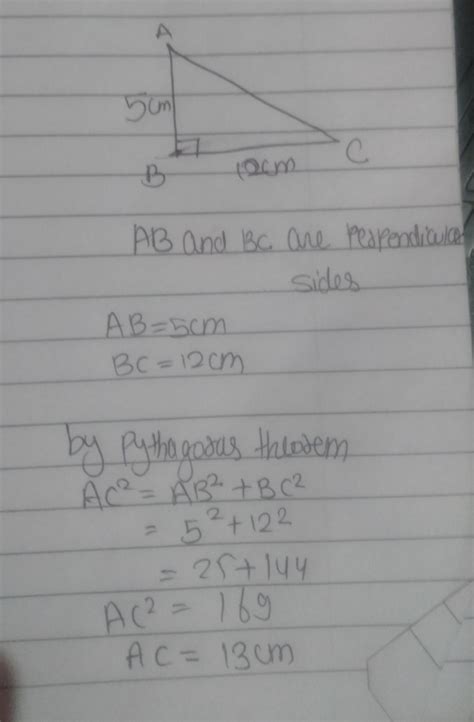 A
5cm
B
12cm
C
AB and BC are perpendicular
sides
AB = 5cm
BC = 12cm
by Pythagoras theorem
AC² = AB² + BC²
= 5² + 12²
= 25 + 144
AC² = 169
AC = 13cm